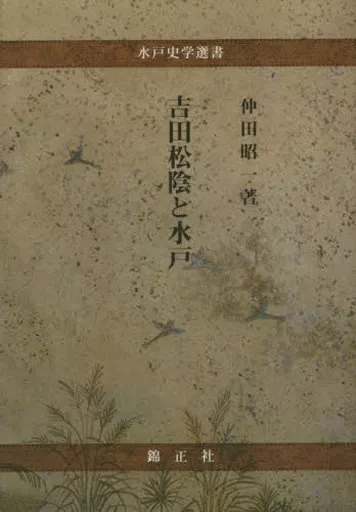 水戸史学選書
仲田昭一著
吉田松陰と水戸
錦正社